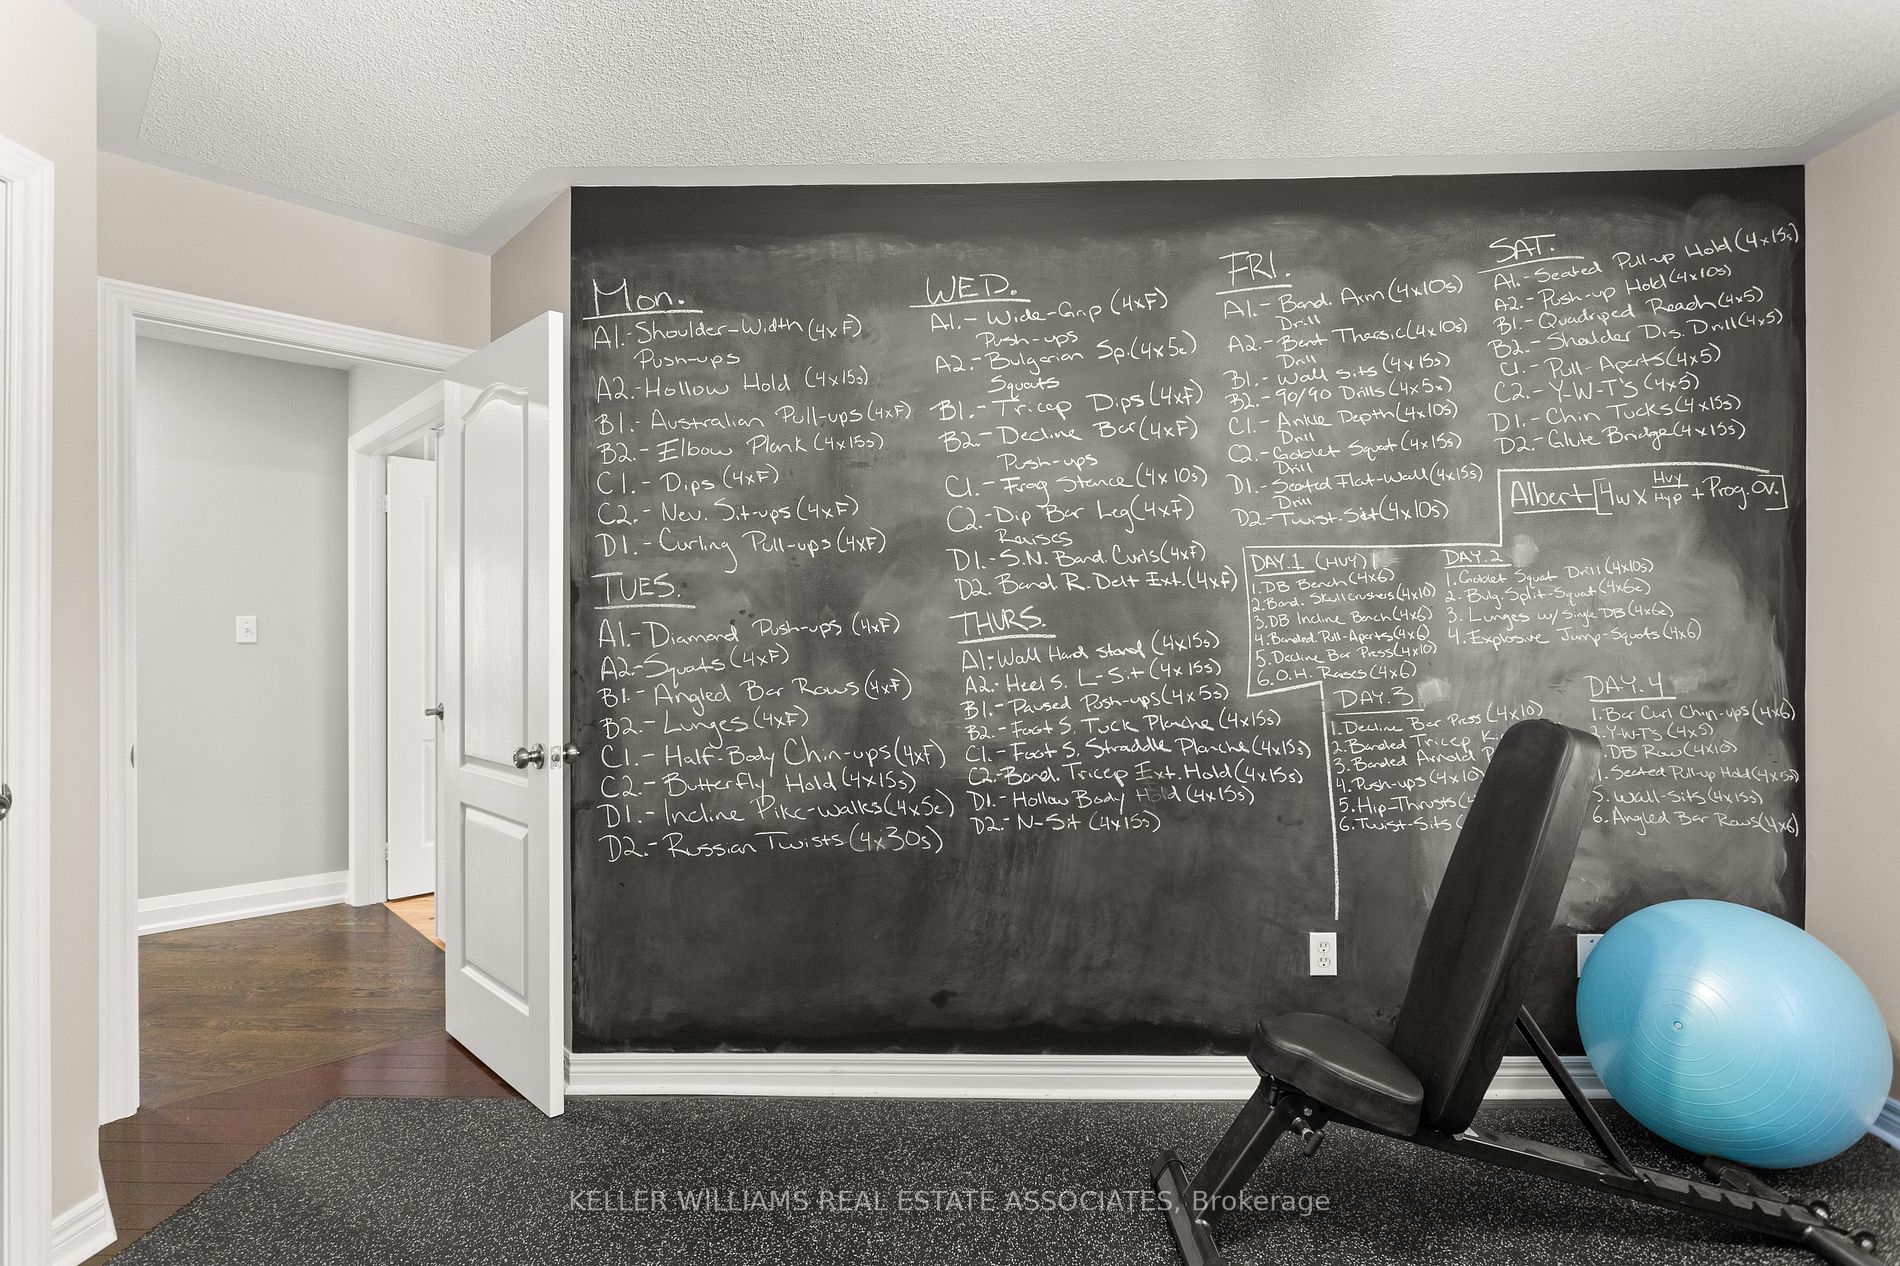 Mon.
A1.- Shoulder-Width (4xF)
Push-ups
A2.- Hollow Hold (4x15s)
B1.- Australian Pull-ups (4xF)
B2.- Elbow Plank (4x15s)
C1.- Dips (4xF)
C2.- Neu. Sit-ups (4xF)
D1.- Curling Pull-ups (4xF)
TUES.
A1.- Diamond Push-ups (4xF)
A2.- Squats (4xF)
B1.- Angled Bar Rows (4xF)
B2.- Lunges (4xF)
C1.- Half-Body Chin-ups (4xF)
C2.- Butterfly Hold (4x15s)
D1.- Incline Pike-walks (4x5e)
D2.- Russian Twists (4x30s)
WED.
A1.- Wide-Grip (4xF)
Push-ups
A2.- Bulgarian Sp. (4x5e)
Squats
B1.- Tricep Dips (4xF)
B2.- Decline Bar (4xF)
Push-ups
C1.- Frog Stance (4x10s)
C2.- Dip Bar Leg (4xF)
Raises
D1.- S.N. Band. Curls (4xF)
D2. Band R. Delt Ext. (4xF)
THURS.
A1.- Wall Hand stand (4x15s)
A2.- Heel S. L-Sit (4x15s)
B1.- Paused Push-ups (4x5s)
B2.- Foot S. Tuck Planche (4x15s)
C1.- Foot S. Straddle Planche (4x15s)
C2.- Band. Tricep Ext. Hold (4x15s)
D1.- Hollow Body Hold (4x15s)
D2.- N-Sit (4x15s)
FRI.
A1.- Band. Arm (4x10s)
Drill
A2.- Bent Thorasic (4x10s)
Drill
B1.- Wall Sits (4x15s)
B2.- 90/90 Drills (4x5x)
C1.- Ankle Depth (4x10s)
Drill
C2.- Goblet Squat (4x15s)
Drill
D1.- Seated Flat-Wall (4x15s)
Drill
D2.- Twist-Sit (4x10s)
SAT.
A1.- Seated Pull-up Hold (4x15s)
A2.- Push-up Hold (4x10s)
B1.- Quadriped Reach (4x5)
B2.- Shoulder Dis. Drill (4x5)
C1.- Pull-Aparts (4x5)
C2.- Y-W-T's (4x5)
D1.- Chin Tucks (4x15s)
D2.- Glute Bridge (4x15s)
Albert [4w x Hvy/Hyp + Prog. Ov.]
DAY.1 (HVY)
1. DB Bench (4x6)
2. Band. Skullcrushers (4x10)
3. DB Incline Bench (4x6)
4. Banded Pull-Aparts (4x6)
5. Decline Bar Press (4x10)
6. O.H. Raises (4x6)
DAY.2
1. Goblet Squat Drill (4x10s)
2. Bulg. Split-Squat (4x6e)
3. Lunges w/ Single DB (4x6e)
4. Explosive Jump-Squats (4x6)
DAY.3
1. Decline Bar Press (4x10)
2. Banded Tricep
3. Banded Arnold
4. Push-ups (4x10)
5. Hip-Thrusts
6. Twist-Sits
DAY.4
1. Bar Curl Chin-ups (4x6)
Y-W-T's (4x5)
DB Row (4x10)
Seated Pull-up Hold (4x5s)
5. Wall-Sits (4x15s)
6. Angled Bar Rows (4x6)
KELLER WILLIAMS REAL ESTATE ASSOCIATES, Brokerage